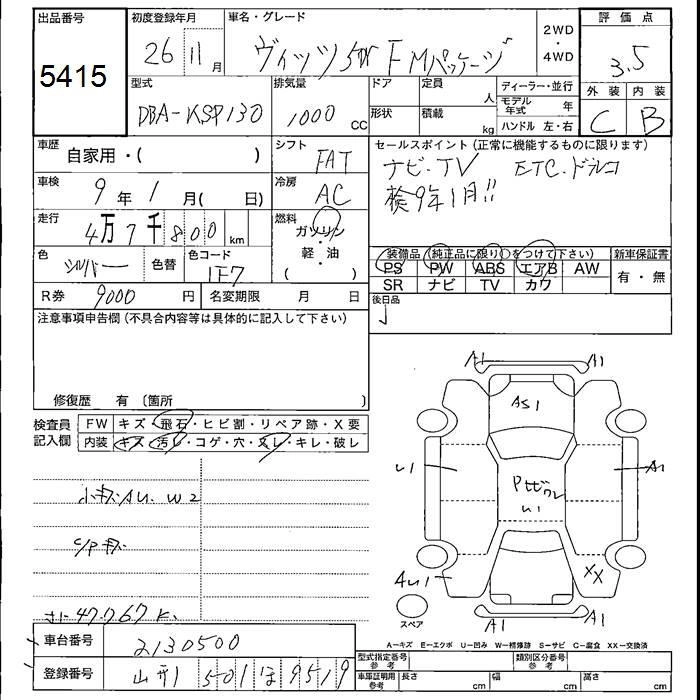 出品番号
5415
初度登録年月
26 11月
車名・グレード
ヴィッツ 5W FMパッケージ
2WD
・
4WD
評価点
3.5
外装 内装
C B
型式
DBA-KSP130
排気量
1000 CC
ドア
定員
人
形状
積載
kg
ディーラー・並行
モデル年式 年
ハンドル 左・右
車歴
自家用・( )
シフト
FAT
車検
9年1月( 日)
冷房
AC
走行
4万7千800 km
燃料
ガソリン
・
軽・油
( )
色
シルバー
色替
色コード
1F7
R券 9000 円
名変期限 月 日
セールスポイント(正常に機能するものに限ります)
ナビ・TV ETC・ドラレコ
検9年1月!!
装備品(純正品に限り○をつけて下さい)
PS PW ABS エアB AW
SR ナビ TV カワ
新車保証書
有・無
後日品
注意事項申告欄(不具合内容等は具体的に記入して下さい)
修復歴 有 〔箇所 〕
検査員
記入欄
FW キズ・飛石・ヒビ割・リペア跡・X要
内装 キズ・汚レ・コゲ・穴・スレ・キレ・破レ
小キズAU. W2
47.767K
A1 A1
AS1
U1
A1
U1
XX
A1 A1
スペア
A−キズ E−エクボ U−凹み W−補修跡 S−サビ C−腐食 XX−交換済
車台番号 2130500
登録番号 山形 501 ほ 9519
型式指定番号
参考
類別区分番号
参考
車庫証明用
参考
長さ cm
幅 cm
高さ cm